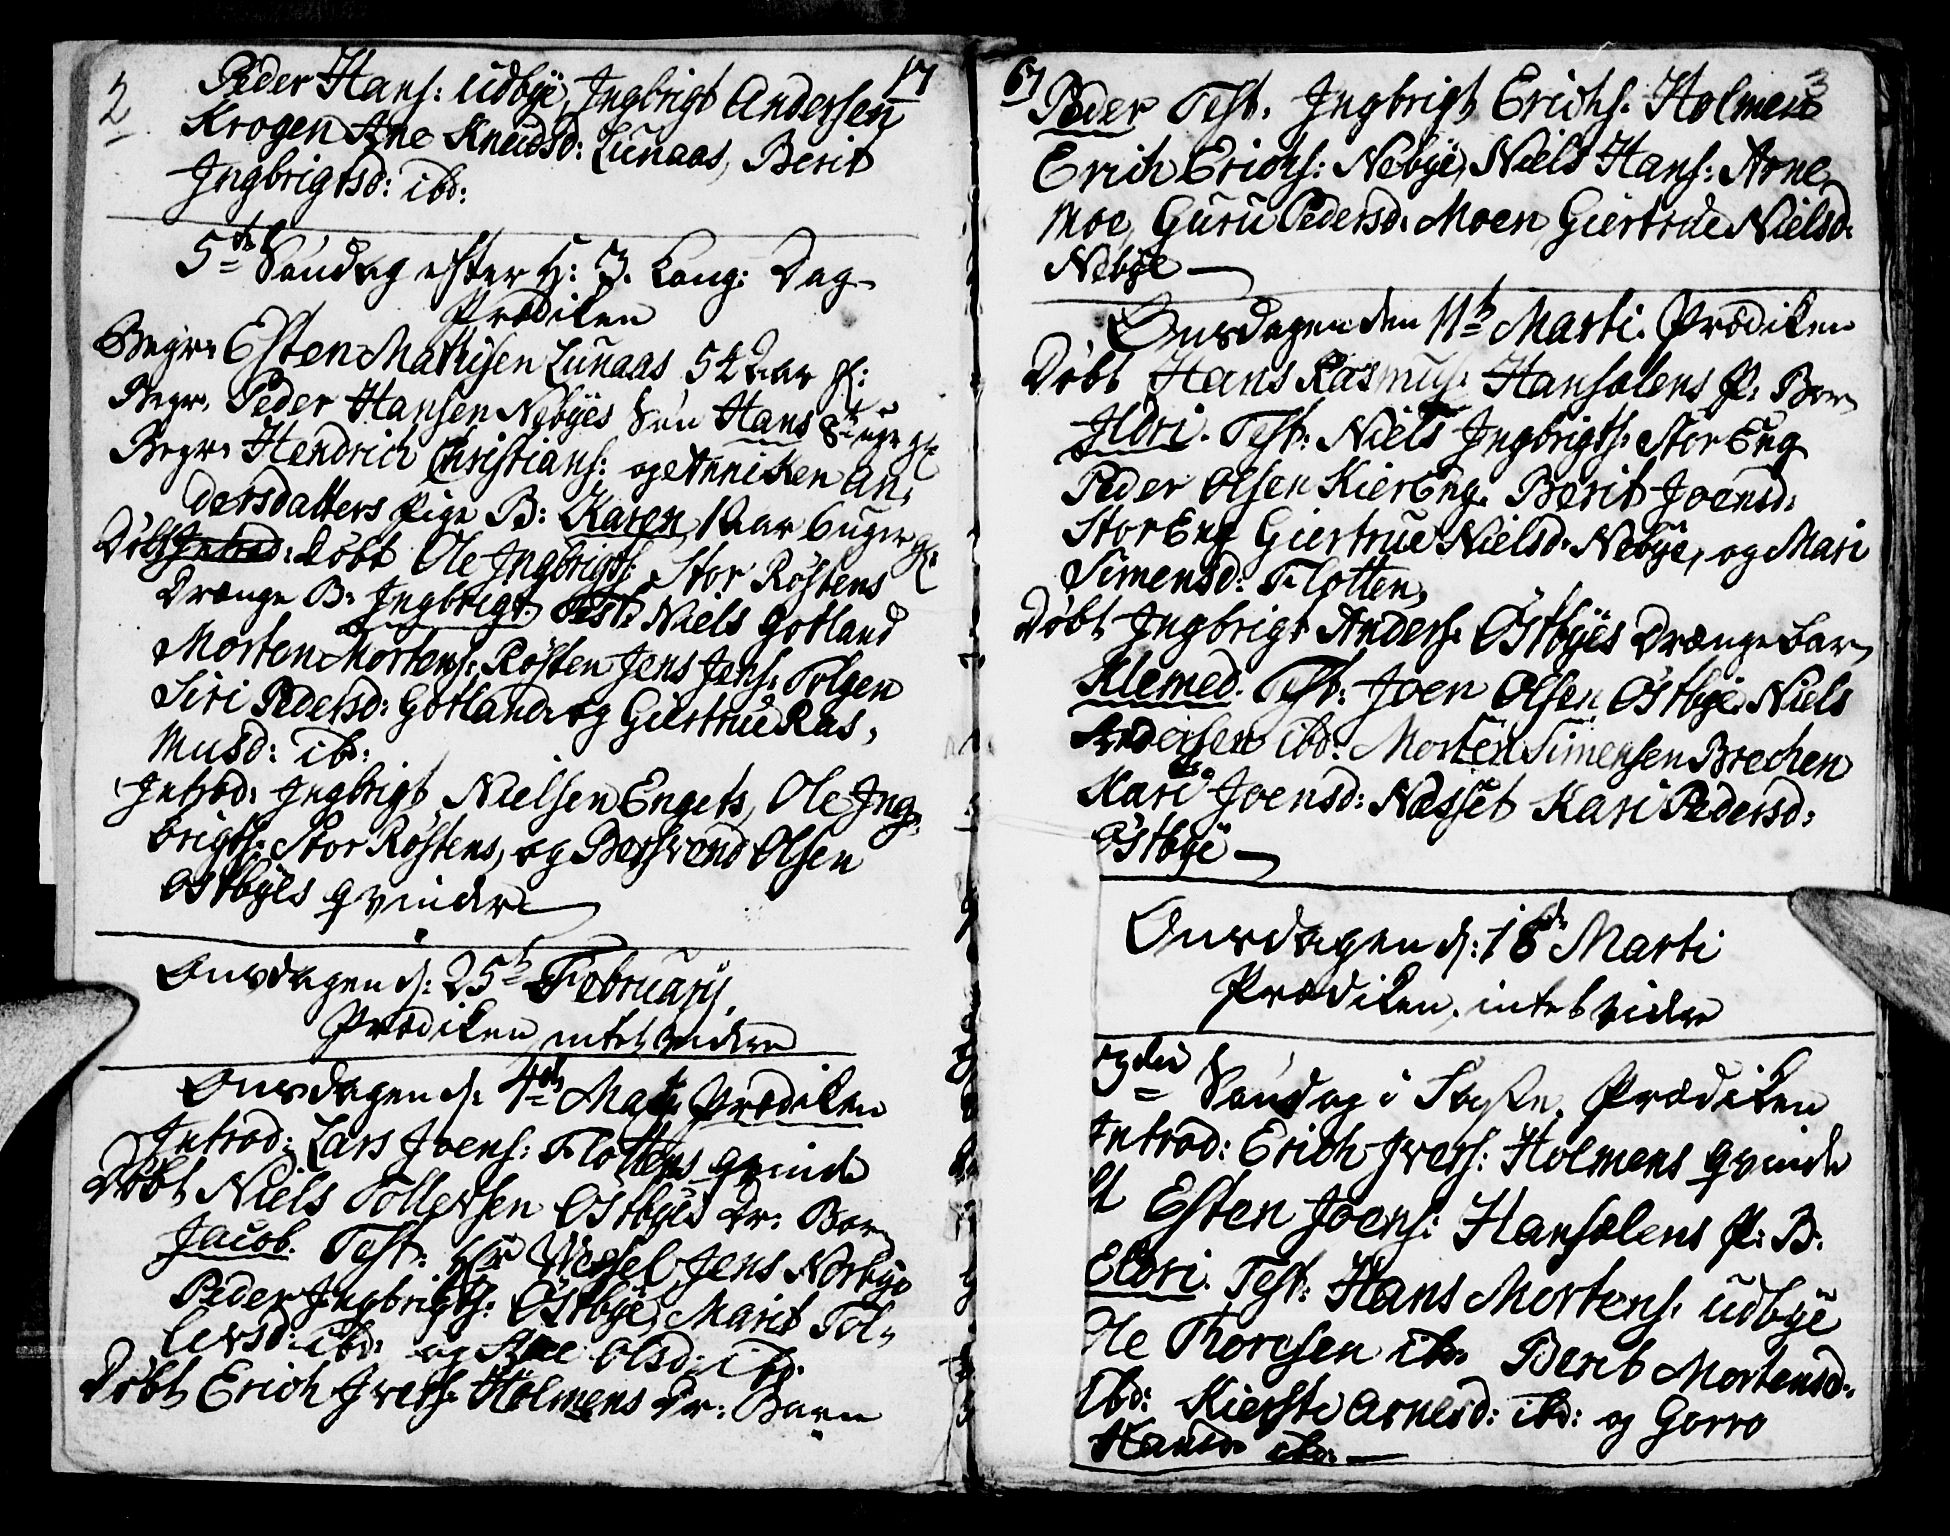 2
17
Peder Hans: Udbye, Ingbrigt Andersen
Krogen Ane Knudsd: Lunaas, Berit
Ingbrigtsd: ibd:
5te Søndag efter H: 3. Kong: Dag
Prædiken
Begr: Esten Mathisen Lunaas 54 Aar gl:
Begr. Peder Hansen Nebyes Søn Hans 8 uger gl:
Begr. Hendrich Christians: og Anniken An,
dersdatters Pige B: Karen, 1 Aar 6 uger gl:
Døbt Introd: Døbt Ole Ingbrigts: Stor Røstens
Drænge B: Ingbrigt. Test: Niels Gotland
Morten Mortens: Røsten Jens Jens: Tolgen
Siri Pedersd: Gotland og Giertrue Ras,
musd: ib:
Introd: Ingbrigt Nielsen Engets, Ole Ing,
brigts: Stor Røstens, og Bersvend Olsen
Østbyes qvinder
Onsdagen d: 25de February
Prædiken, intet videre
Onsdagen d: 4de Marti Prædiken
Introd: Lars Joens: Flottens qvinde
Døbt Niels Tollevsen Østbyes Dr: Barn
Jacob. Test: Hr Wessel, Jens Norbye
Peder Ingbrigts: Østbye, Marit Tol,
levsd: ibd: og Ane Olsd: ibd.
Døbt Erich Ivers: Holmens Dr: Barn
67
3
Peder Test. Ingbrigt Erichs. Holmens
Erich Erichs: Nebye, Niels Hans: Arne
moe, Guru Pedersd. Moen, Giertrue Nielsd.
Nebye
Onsdagen den 11te Marti. Prædiken
Døbt Hans Rasmus: Hansalens P: Barn
Ildri. Test: Niels Ingbrigts: Stor Eng
Peder Olsen KierEng. Berit Joensd:
StorEng Giertrue Nielsd. Nebye, og Mari
Simensd: Flotten,
Døbt Ingbrigt Anders. Østbyes Drænge Barn
Klemed. Test: Joen Olsen Østbye. Niels
Andersen ibd: Morten Simensen Brechen
Kari Joensd: Næsset Kari Pedersd:
Østbye
Onsdagen d: 18de Marti
Prædiken, intet videre
3die Søndag i Faste. Prædiken
Introd: Erich Ivers: Holmens qvinde
Esten Joens: Hansalens P: B:
Eldri. Test: Hans Mortens. Udbye
Ole Thoresen ib. Berit Mortensd.
ibd: Kiersti Arnesd: ibd: og Gorro
Hansd. ibd: